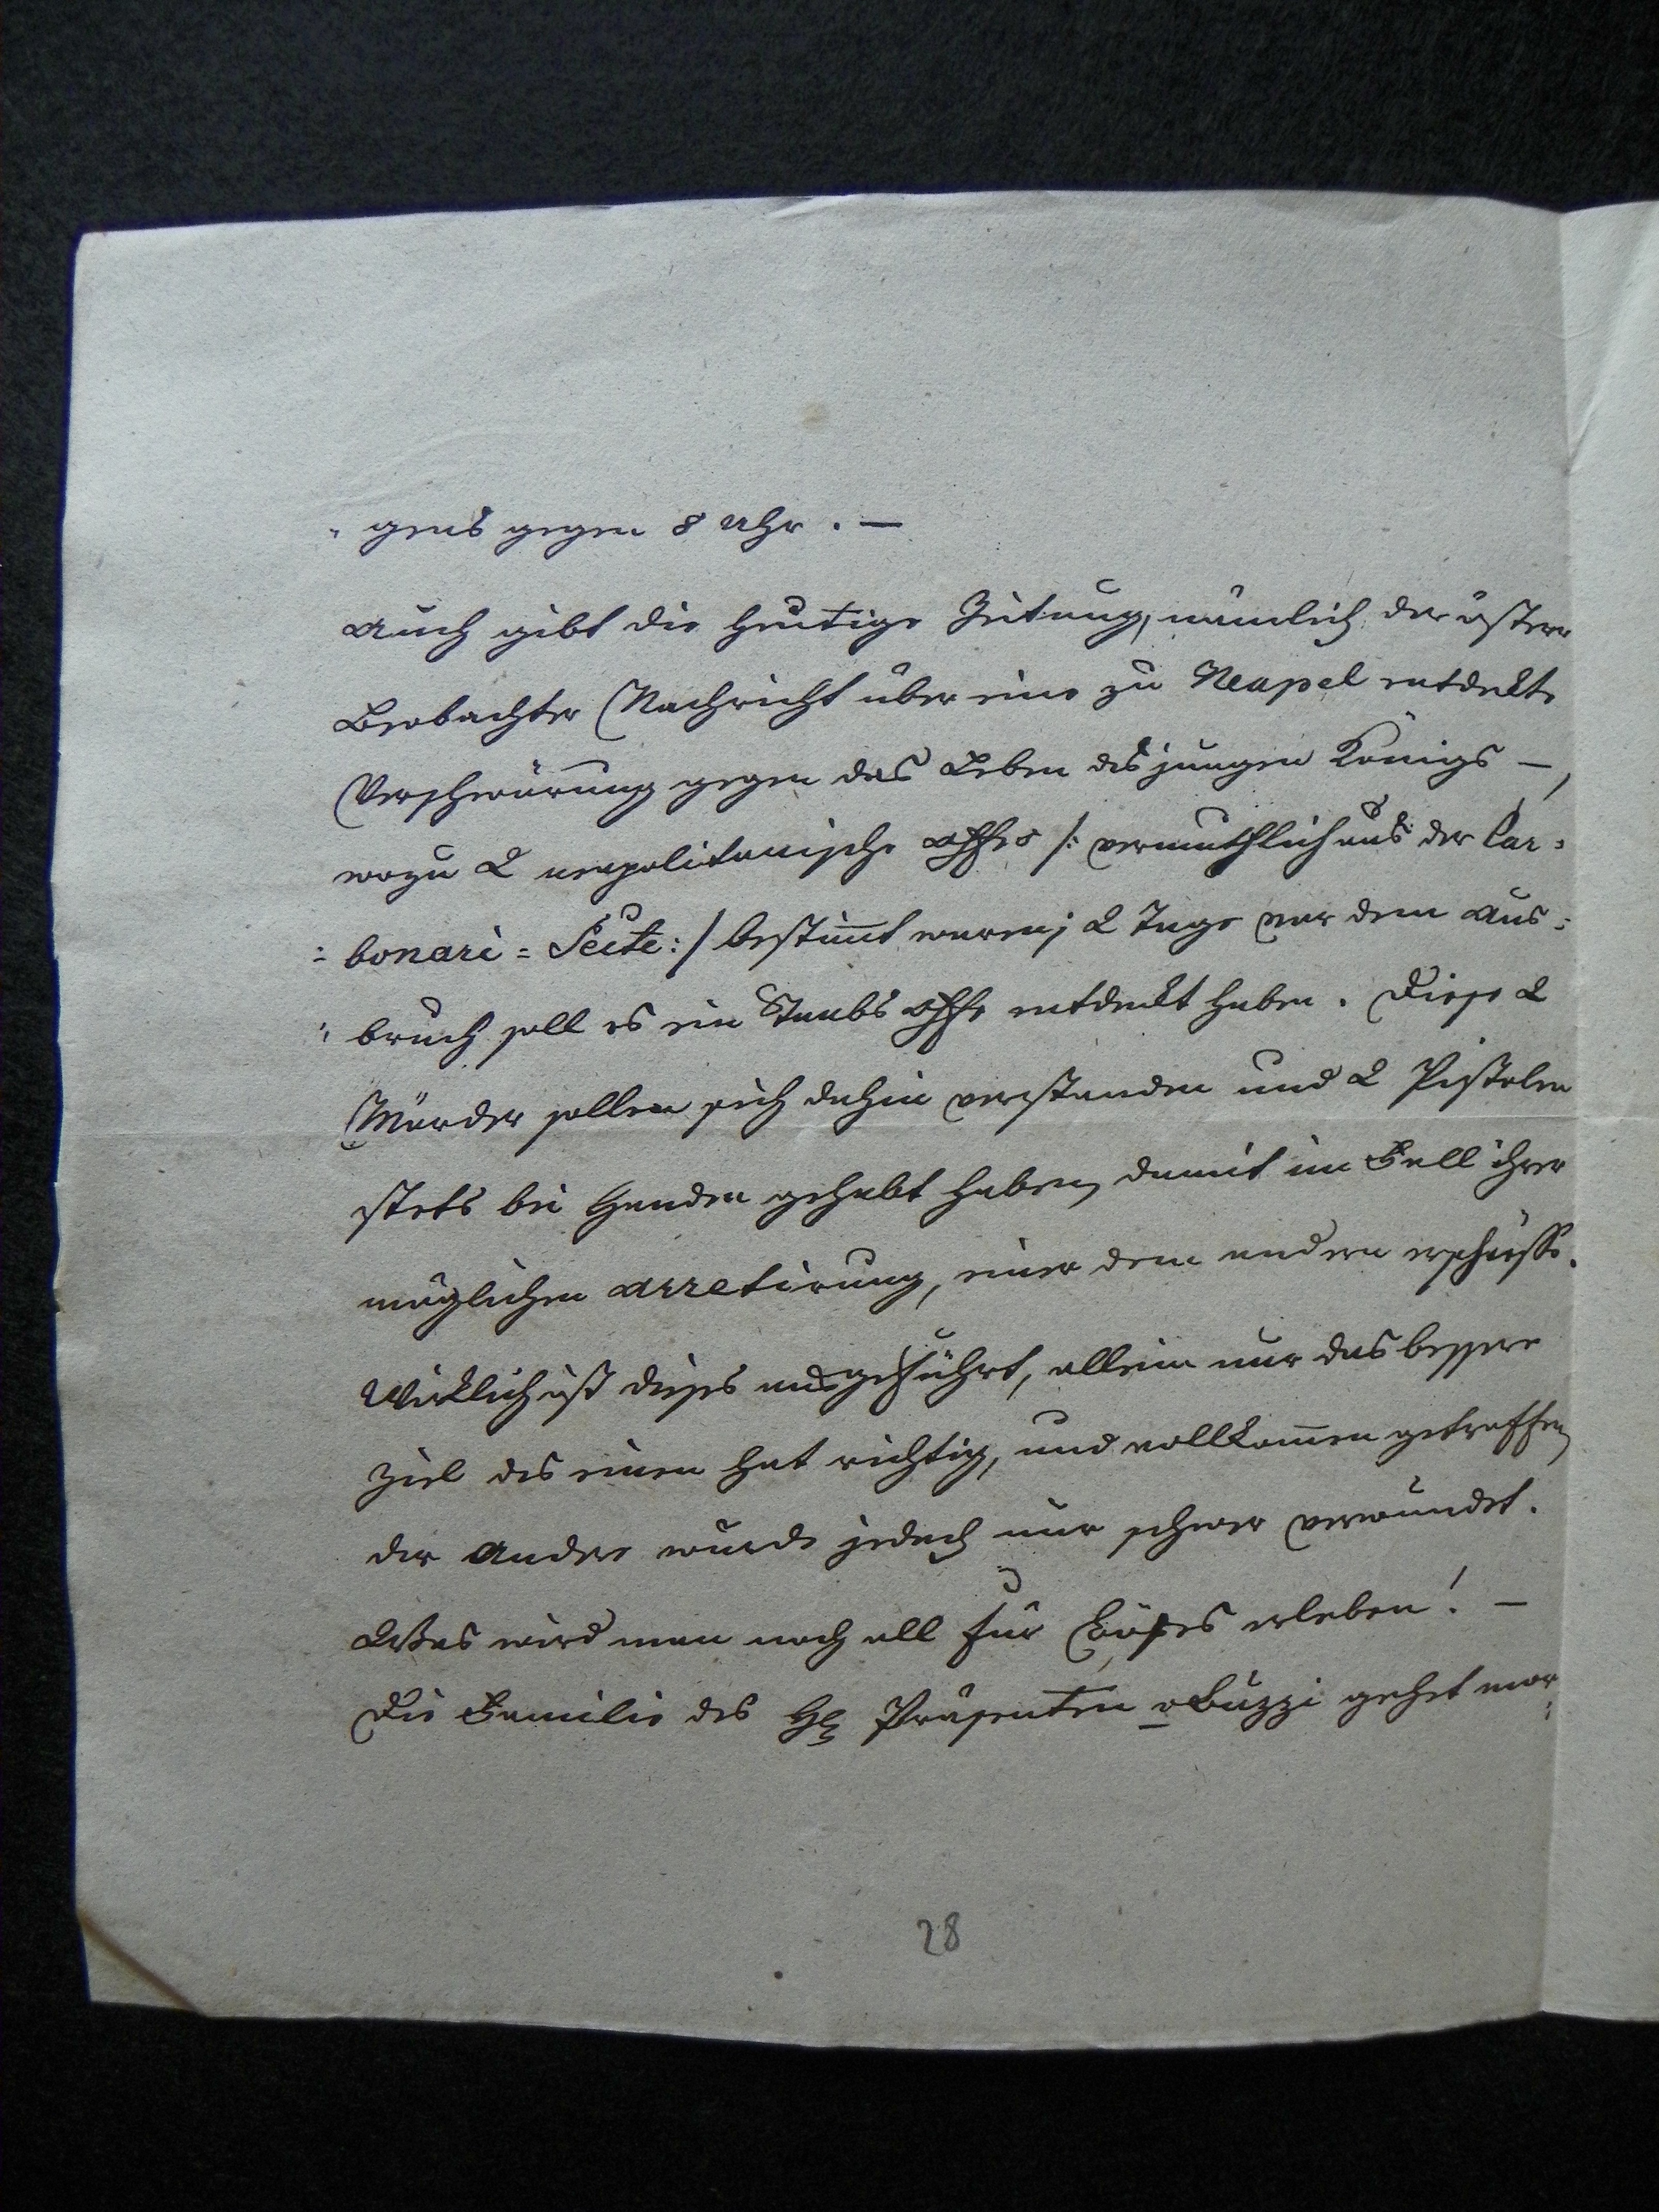 "gens gegen 8 Uhr. —
Auch gibt die heutige Zeitung, nämlich der österr
Beobachter Nachricht über eine zu Neapel entdekte
Verschwörung gegen das Leben des jungen Königs —,
wozu 2 neapolitanische Offrs /: vermuthlich aus der Car=
=bonari=Seite :/ bestimt waren; 2 Tage vor dem Aus=
"bruch soll es ein Staabs Offr entdekt haben. Diese 2
Mörder sollen sich dahin verstanden und 2 Pistolen
stets bei Handen gehabt haben, damit im Fall ihrer
möglichen Arretirung, einer dem andern erschiesse.
Wirklich ist dieses ausgeführt, allein nur das bessere
Ziel des einen hat richtig, und vollkomen getroffen,
der Andere wurde jedoch nur schwer verwundet.
Was wird man noch all für Böses erleben! —
Die Familie des H Präsenten v Buzzi gehet mor=
28